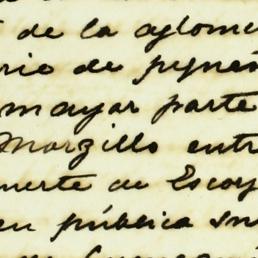 de la aglome
rio de
mayor parte
Morzillo entr
uerte de Escoy
en pública